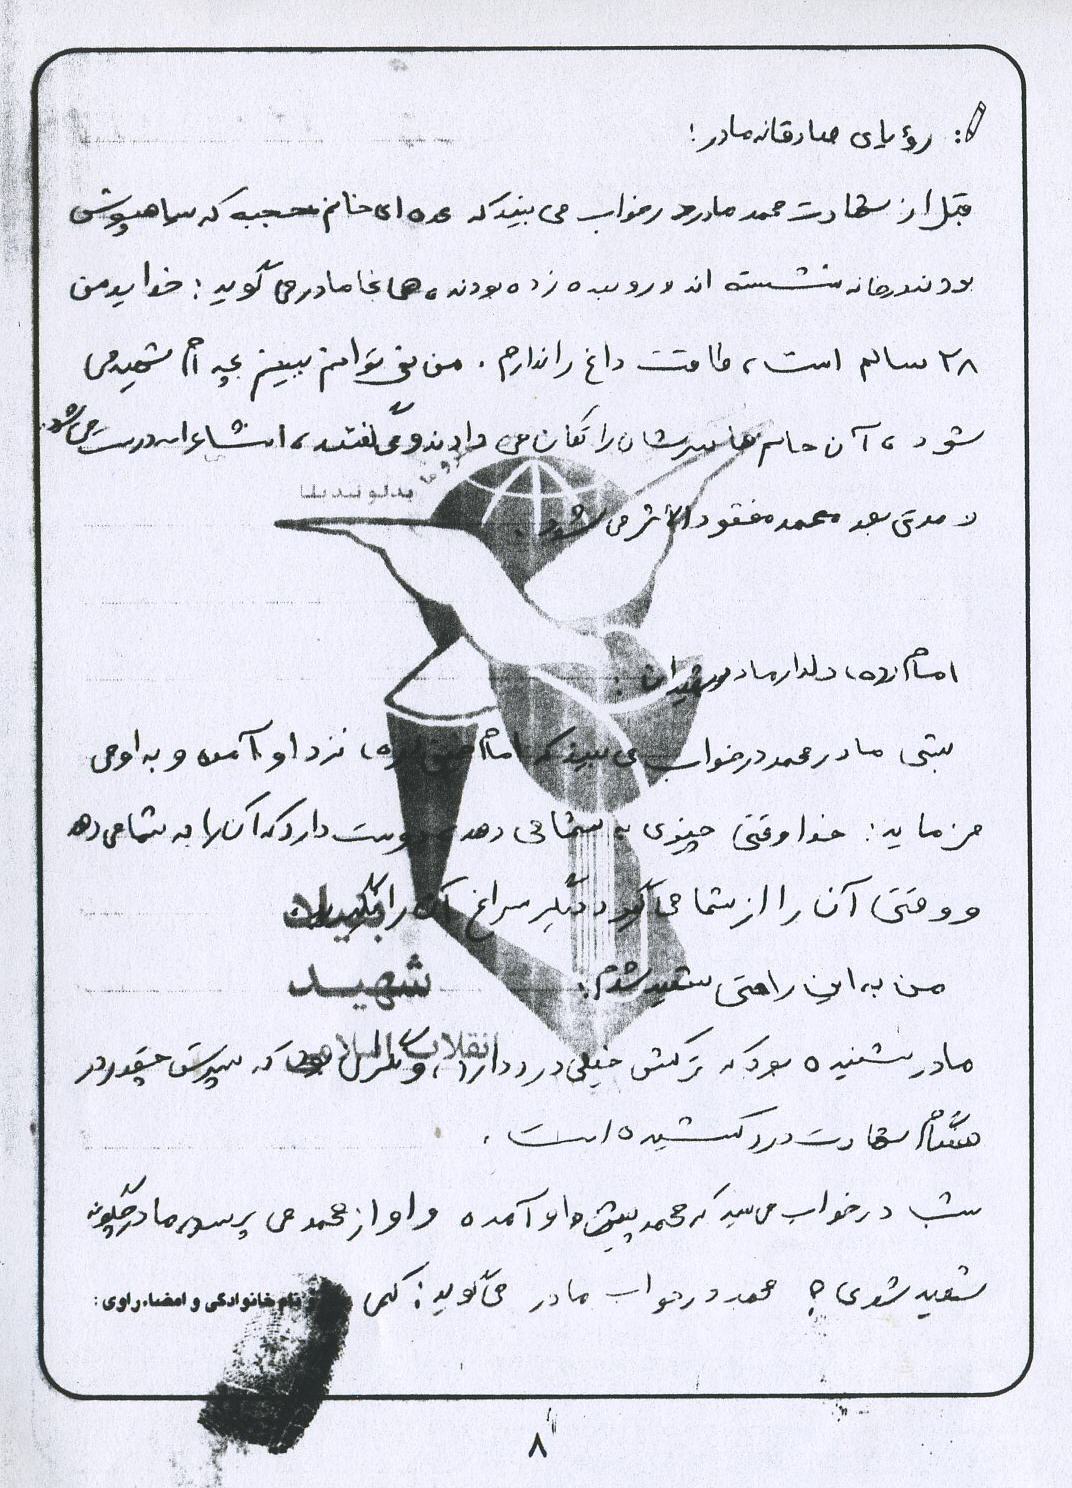 : رؤیای صادقانه مادر :
قبل از شهادت محمد مادر در خواب می بیند که عده ای خانم محجبه که سیاهپوش
بودند در خانه نشسته اند و روبنده زده بودند، مادر می گوید : خدایا من
۲۸ سالم است، طاقت داغ را ندارم . من نمی توانم ببینم بچه ام شهید می
شود ، آن خانم ها سرشان را تکان می دادند و می گفتند ، انشاءا... درست می شود.
و مدتی بعد محمد مفقودالاثر می شود .
امام (ره)، دلدار مادر شهیدان :
شبی مادر محمد در خواب می بیند که امام خمینی (ره) نزد او آمده و به او می
فرماید : خدا وقتی چیزی به شما می دهد دوست دارد که آن را به شما می دهد
و وقتی آن را از شما می گیرد دیگر سراغ آن را نگیرید.
من به این راحتی شهید شدم :
مادر شنیده بود که ترکش خیلی درد دارد ، و نگران بود که پسرش چقدر در
هنگام شهادت درد کشیده است .
شب در خواب می بیند که محمد پیش او آمده و او از محمد می پرسد، مادر چگونه
شهید شدی ؟ محمد در خواب مادر می گوید : کمی
نام خانوادگی و امضاء راوی :
بنیاد
شهید
انقلاب اسلامی
۸